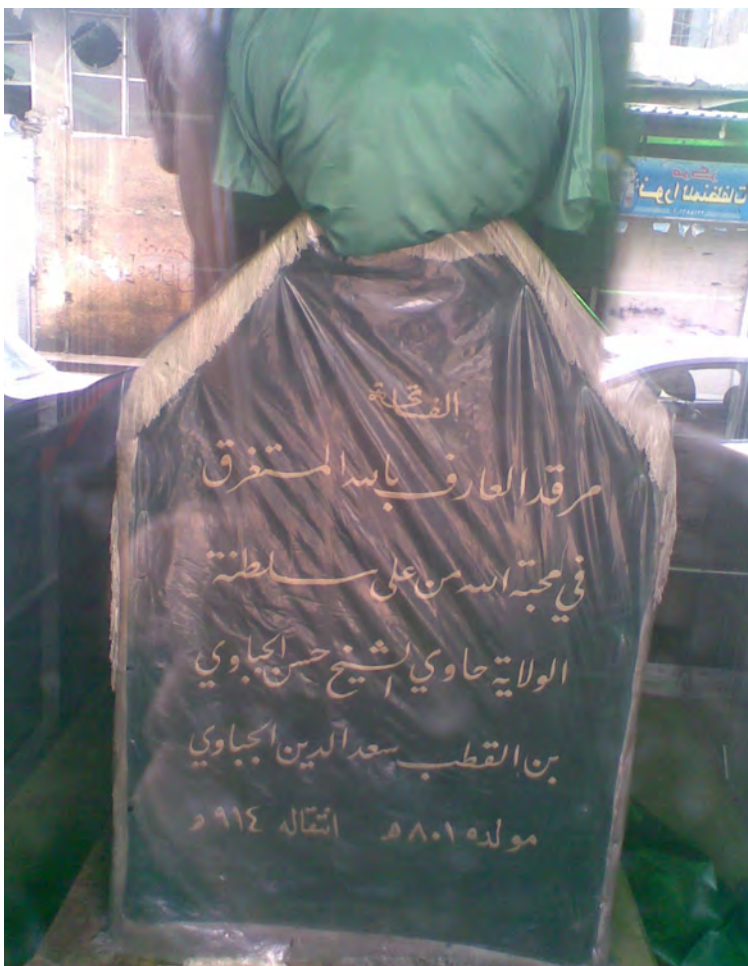 الفاتحة
مرقد العارف بالله المستغرق
في محبة الله من على سلطنة
الولاية حاوي الشيخ حسن الجباوي
بن القطب سعد الدين الجباوي
مولده ٨٠١ هـ انتقاله ٩١٤ هـ
للمنظفات